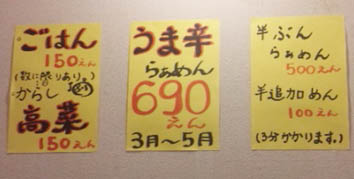 ごはん
150えん
(数に限りあり。)
からし
高菜
150えん
うま辛
らぁめん
690
えん
3月〜5月
半ぶん
らぁめん
500えん
半追加めん
100えん
(3分かかります。)